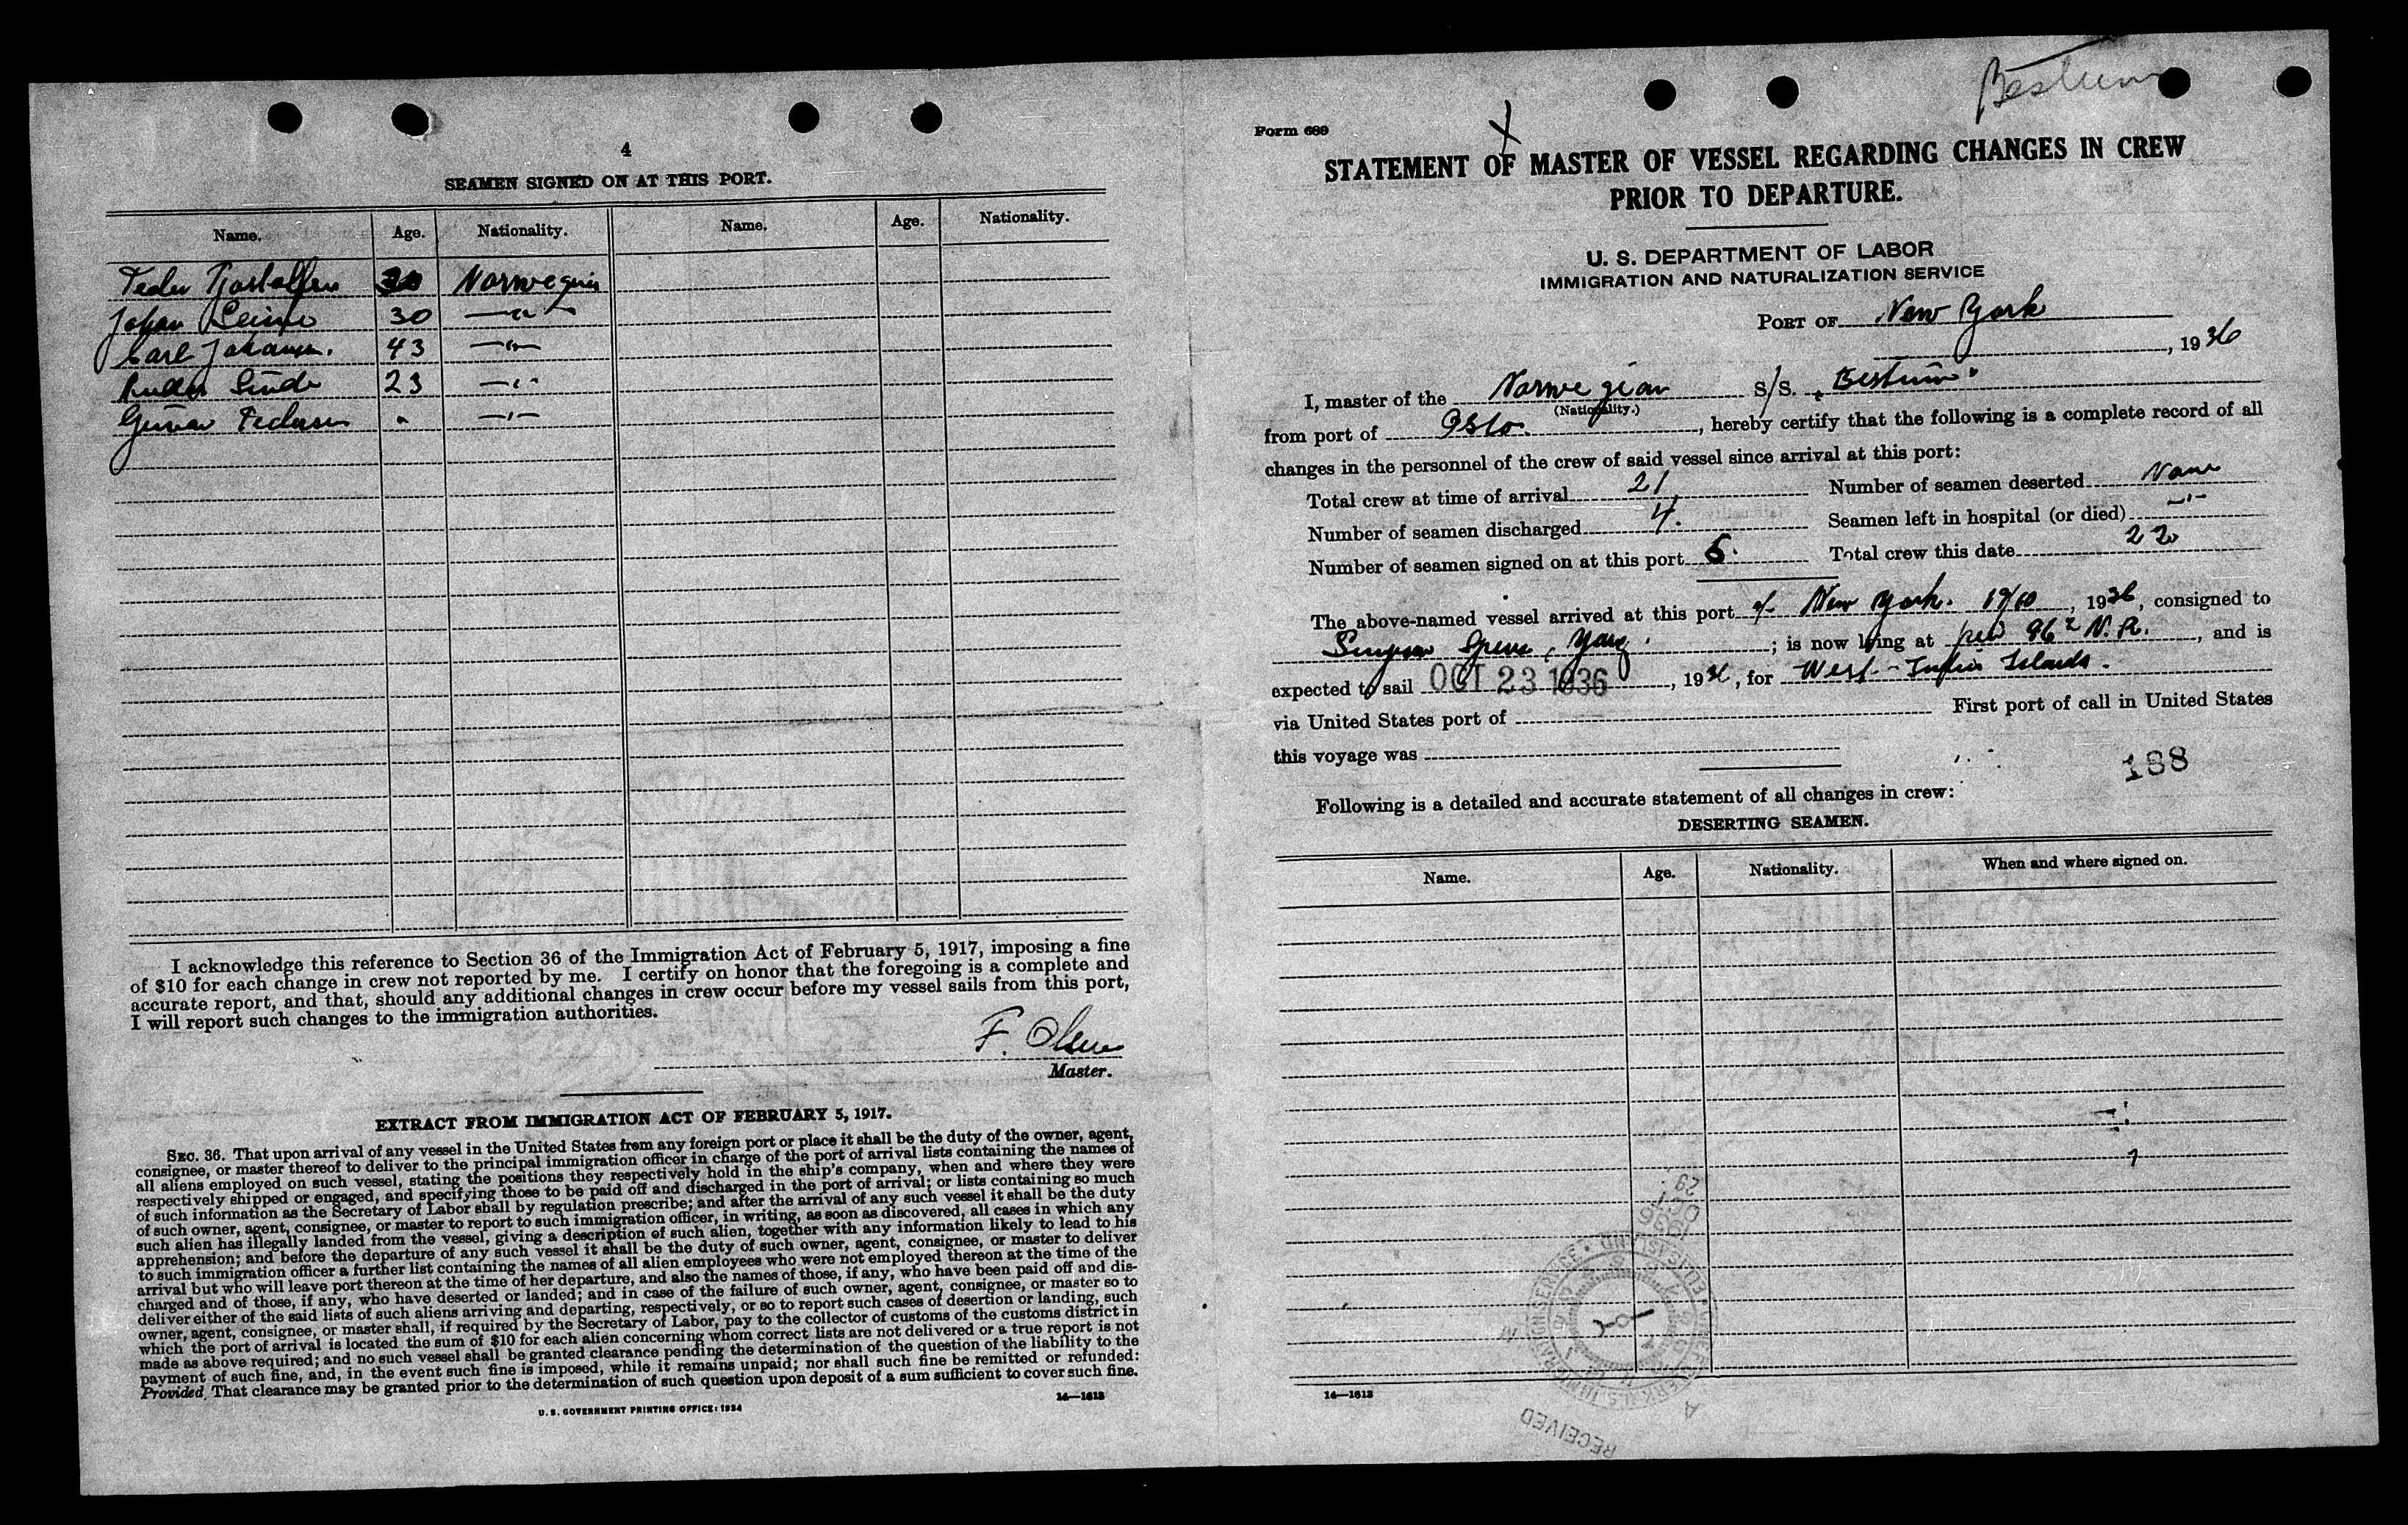 4
SEAMEN SIGNED ON AT THIS PORT.
Name. Age. Nationality. Name. Age. Nationality.
30 Norwegian
Johan 30 —"—
Carl Johansen. 43 —"—
23 —"—
Gunnar Pedersen " —"—
I acknowledge this reference to Section 36 of the Immigration Act of February 5, 1917, imposing a fine
of $10 for each change in crew not reported by me. I certify on honor that the foregoing is a complete and
accurate report, and that, should any additional changes in crew occur before my vessel sails from this port,
I will report such changes to the immigration authorities.
F. Olsen
Master.
EXTRACT FROM IMMIGRATION ACT OF FEBRUARY 5, 1917.
SEC. 36. That upon arrival of any vessel in the United States from any foreign port or place it shall be the duty of the owner, agent,
consignee, or master thereof to deliver to the principal immigration officer in charge of the port of arrival lists containing the names of
all aliens employed on such vessel, stating the positions they respectively hold in the ship's company, when and where they were
respectively shipped or engaged, and specifying those to be paid off and discharged in the port of arrival; or lists containing so much
of such information as the Secretary of Labor shall by regulation prescribe; and after the arrival of any such vessel it shall be the duty
of such owner, agent, consignee, or master to report to such immigration officer, in writing, as soon as discovered, all cases in which any
such alien has illegally landed from the vessel, giving a description of such alien, together with any information likely to lead to his
apprehension; and before the departure of any such vessel it shall be the duty of such owner, agent, consignee, or master to deliver
to such immigration officer a further list containing the names of all alien employees who were not employed thereon at the time of the
arrival but who will leave port thereon at the time of her departure, and also the names of those, if any, who have been paid off and dis-
charged and of those, if any, who have deserted or landed; and in case of the failure of such owner, agent, consignee, or master so to
deliver either of the said lists of such aliens arriving and departing, respectively, or so to report such cases of desertion or landing, such
owner, agent, consignee, or master shall, if required by the Secretary of Labor, pay to the collector of customs of the customs district in
which the port of arrival is located the sum of $10 for each alien concerning whom correct lists are not delivered or a true report is not
made as above required; and no such vessel shall be granted clearance pending the determination of the question of the liability to the
payment of such fine, and, in the event such fine is imposed, while it remains unpaid; nor shall such fine be remitted or refunded:
Provided, That clearance may be granted prior to the determination of such question upon deposit of a sum sufficient to cover such fine.
U. S. GOVERNMENT PRINTING OFFICE: 1934
14—1613
Bestum
Form 689
X
STATEMENT OF MASTER OF VESSEL REGARDING CHANGES IN CREW
PRIOR TO DEPARTURE.
U. S. DEPARTMENT OF LABOR
IMMIGRATION AND NATURALIZATION SERVICE
PORT OF New York
, 1936
I, master of the Norwegian S/S. "Bestum"
(Nationality.)
from port of Oslo. , hereby certify that the following is a complete record of all
changes in the personnel of the crew of said vessel since arrival at this port:
Total crew at time of arrival 21 Number of seamen deserted None
Number of seamen discharged 4. Seamen left in hospital (or died) —"—
Number of seamen signed on at this port 5. Total crew this date 22
The above-named vessel arrived at this port of New York. 19/10, 1936, consigned to
Simpson Spence, Young ; is now lying at pier 96 N. R. , and is
expected to sail OCT 23 1936, 1936, for West-India Islands.
via United States port of First port of call in United States
this voyage was
188
Following is a detailed and accurate statement of all changes in crew:
DESERTING SEAMEN.
Name. Age. Nationality. When and where signed on.
14—1613
1936
OCT
29
RECEIVED